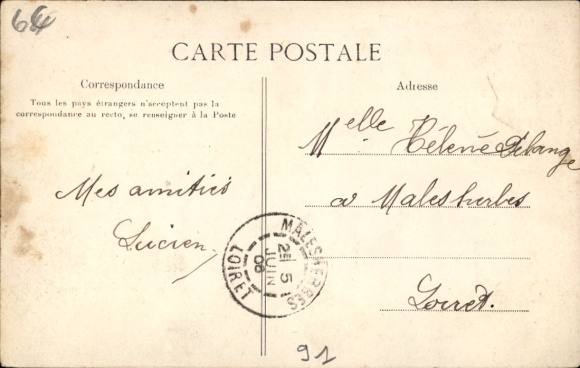 64
CARTE POSTALE
Correspondance
Tous les pays étrangers n'acceptent pas la
correspondance au recto, se renseigner à la Poste
Mes amitiés
Lucien
Adresse
Melle Hélène Delange
à Malesherbes
Loiret.
MALESHERBES
2E 5
JUIN
06
LOIRET
91